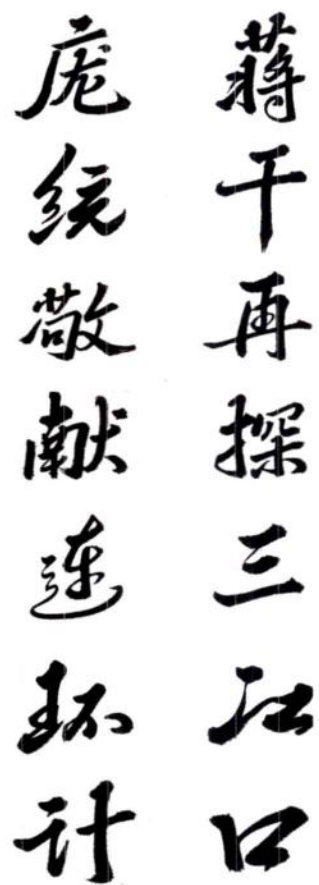 蒋干再探三江口
庞统敬献连环计